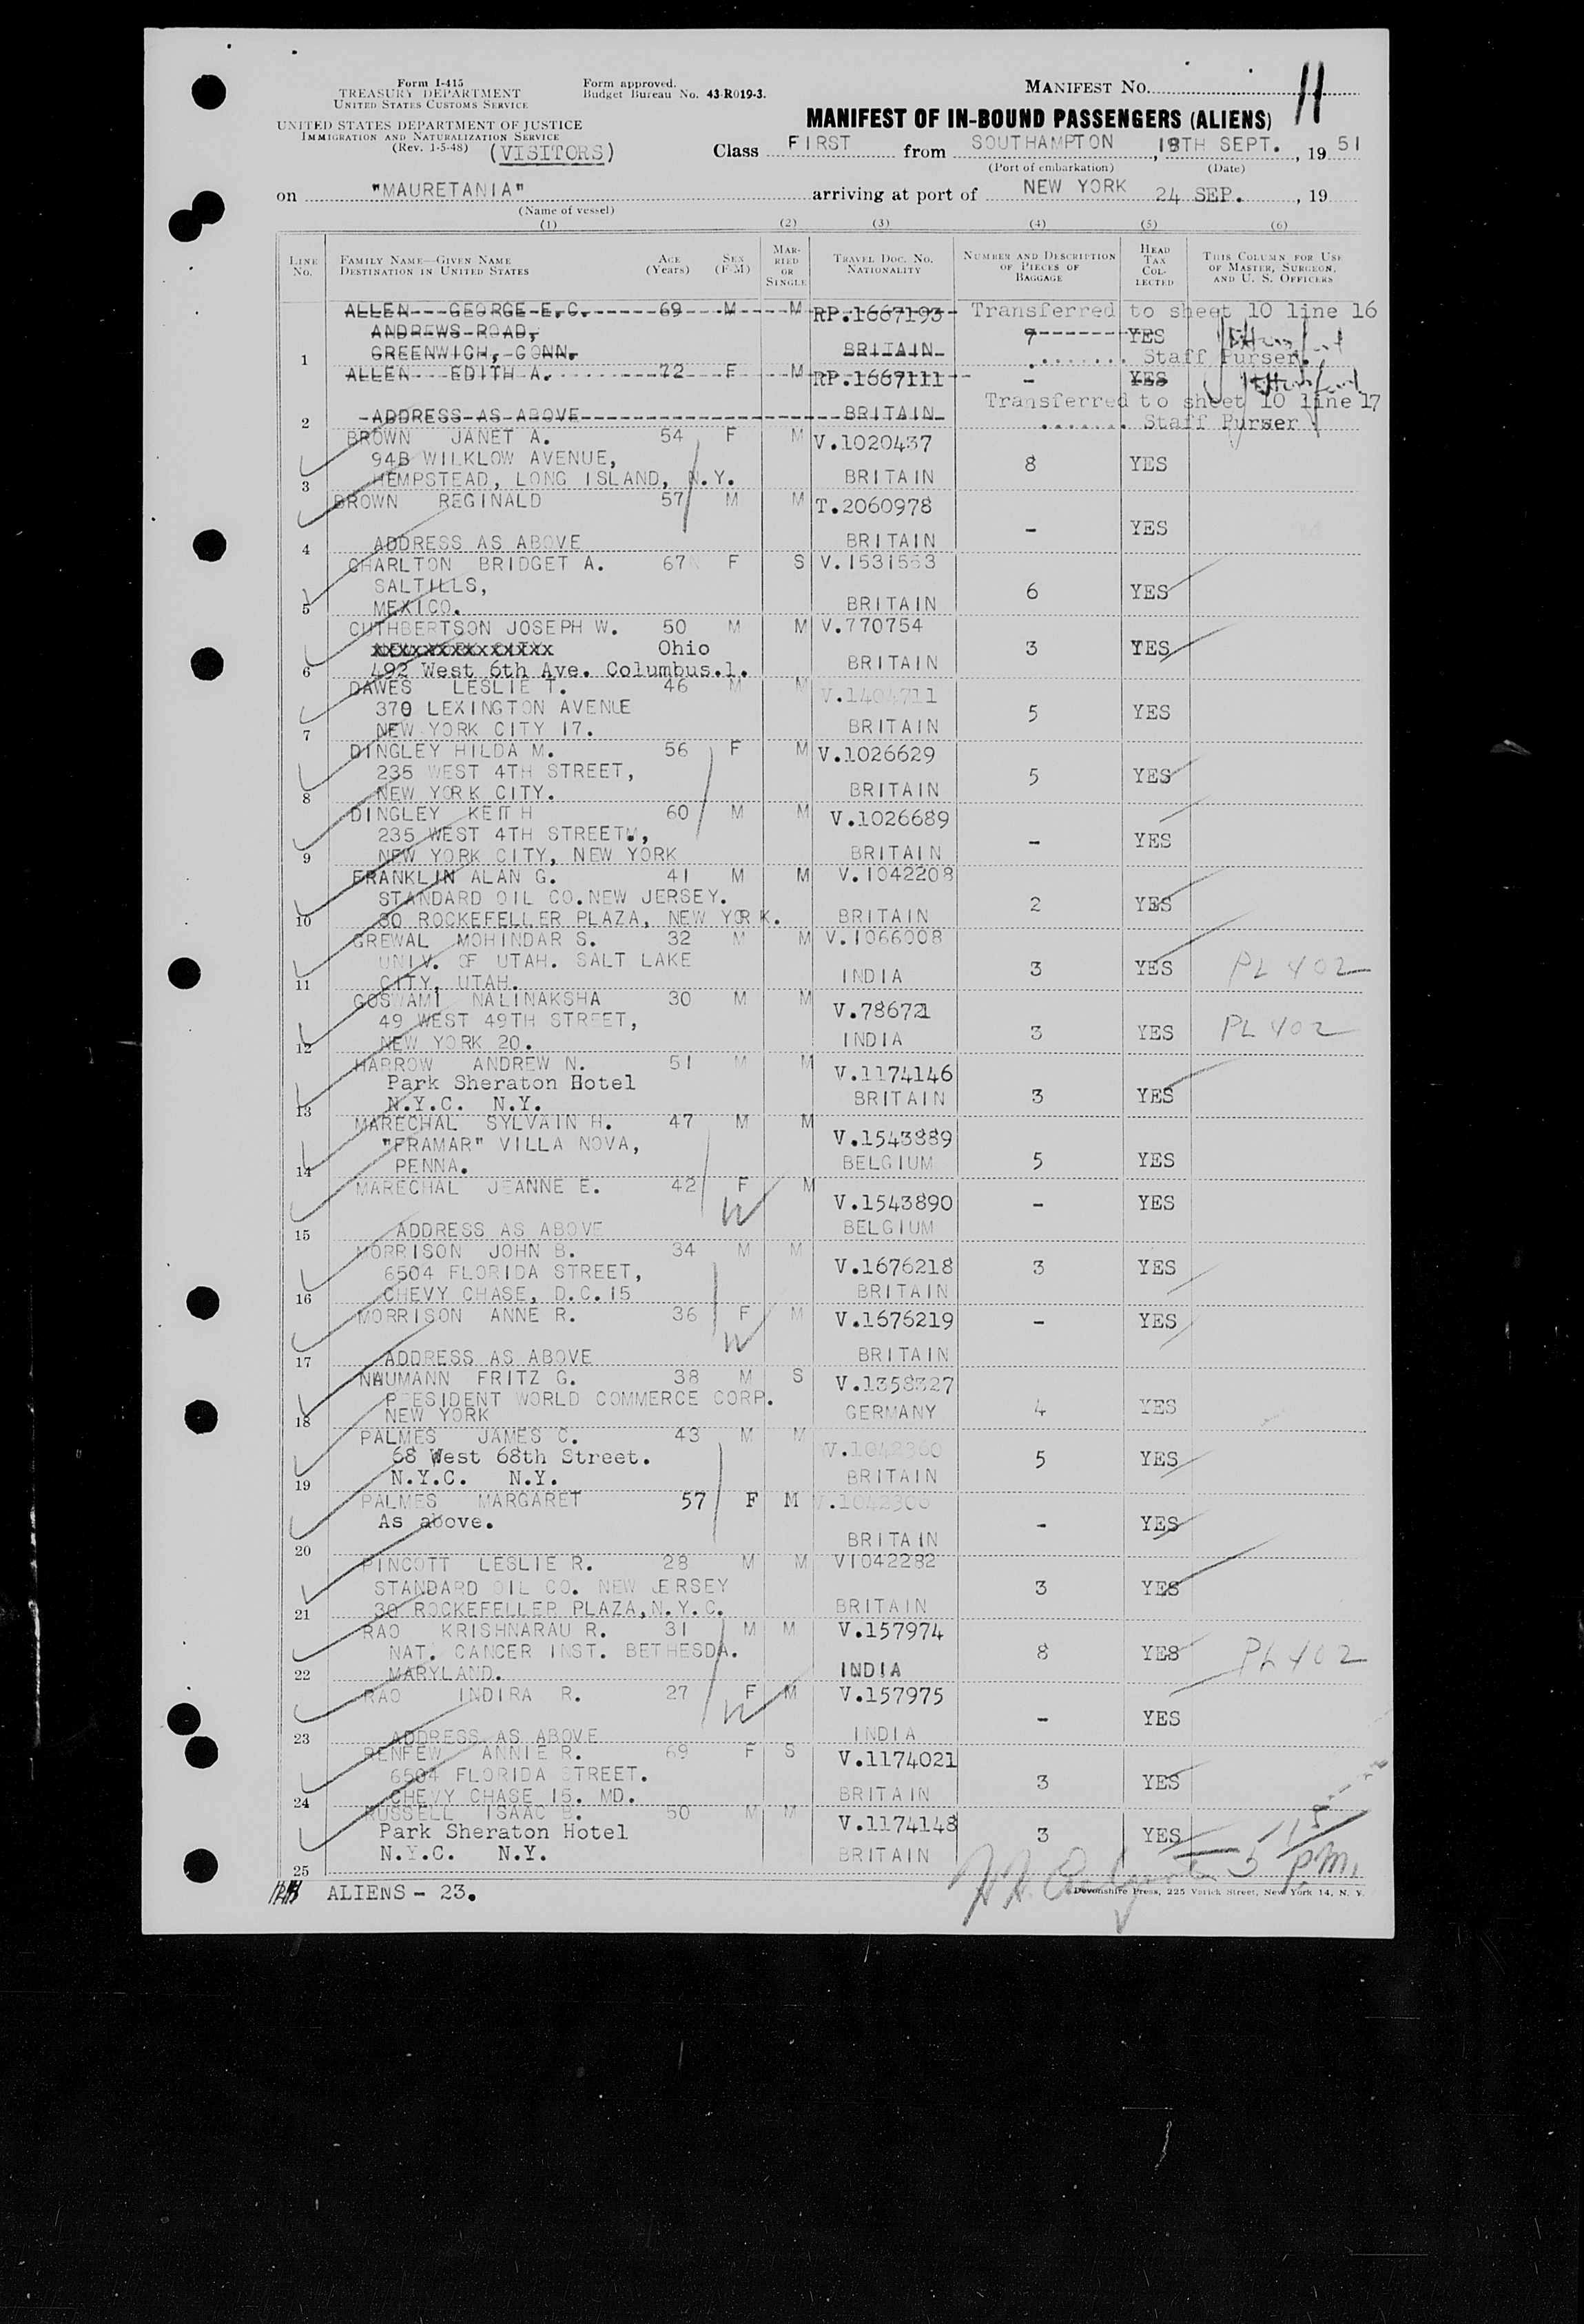 Form I-415
TREASURY DEPARTMENT
UNITED STATES CUSTOMS SERVICE
Form approved.
Budget Bureau No. 43-R019-3.
MANIFEST No. 11
UNITED STATES DEPARTMENT OF JUSTICE
IMMIGRATION AND NATURALIZATION SERVICE
(Rev. 1-5-48) (VISITORS)
MANIFEST OF IN-BOUND PASSENGERS (ALIENS)
Class FIRST from SOUTHAMPTON, 18TH SEPT., 19 51
(Port of embarkation) (Date)
on "MAURETANIA" arriving at port of NEW YORK 24 SEP., 19
(Name of vessel)
(1) (2) (3) (4) (5) (6)
LINE No. FAMILY NAME—GIVEN NAME DESTINATION IN UNITED STATES AGE (Years) SEX (F M) MARRIED OR SINGLE TRAVEL DOC. NO. NATIONALITY NUMBER AND DESCRIPTION OF PIECES OF BAGGAGE HEAD TAX COLLECTED THIS COLUMN FOR USE OF MASTER, SURGEON, AND U. S. OFFICERS
ALLEN GEORGE E.C. 69 M M RP.1667193 Transferred to sheet 10 line 16
ANDREWS ROAD, 7 YES
1 GREENWICH, CONN. BRITAIN ....... Staff Purser.
ALLEN EDITH A. 72 F M RP.1667111 - YES
Transferred to sheet 10 line 17
2 ADDRESS AS ABOVE BRITAIN ....... Staff Purser
BROWN JANET A. 54 F M V.1020437
94B WILKLOW AVENUE, 8 YES
3 HEMPSTEAD, LONG ISLAND, N.Y. BRITAIN
BROWN REGINALD 57 M M T.2060978
- YES
4 ADDRESS AS ABOVE BRITAIN
CHARLTON BRIDGET A. 67 F S V.1531553
SALTILLS, 6 YES
5 MEXICO. BRITAIN
CUTHBERTSON JOSEPH W. 50 M M V.770754
Ohio 3 YES
6 492 West 6th Ave. Columbus.1. BRITAIN
DAWES LESLIE T. 46 M M V.1404711
370 LEXINGTON AVENUE 5 YES
7 NEW YORK CITY 17. BRITAIN
DINGLEY HILDA M. 56 F M V.1026629
235 WEST 4TH STREET, 5 YES
8 NEW YORK CITY. BRITAIN
DINGLEY KEITH 60 M M V.1026689
235 WEST 4TH STREETM, - YES
9 NEW YORK CITY, NEW YORK BRITAIN
FRANKLIN ALAN G. 41 M M V.1042208
STANDARD OIL CO.NEW JERSEY. 2 YES
10 30 ROCKEFELLER PLAZA, NEW YORK. BRITAIN
GREWAL MOHINDAR S. 32 M M V.1066008
UNIV. OF UTAH. SALT LAKE 3 YES PL 402
11 CITY, UTAH. INDIA
GOSWAMI NALINAKSHA 30 M M V.786721
49 WEST 49TH STREET, 3 YES PL 402
12 NEW YORK 20. INDIA
HARROW ANDREW N. 51 M M V.1174146
Park Sheraton Hotel 3 YES
13 N.Y.C. N.Y. BRITAIN
MARECHAL SYLVAIN H. 47 M M V.1543889
"FRAMAR" VILLA NOVA, 5 YES
14 PENNA. BELGIUM
MARECHAL JEANNE E. 42 F M V.1543890
W - YES
15 ADDRESS AS ABOVE BELGIUM
MORRISON JOHN B. 34 M M V.1676218
6504 FLORIDA STREET, 3 YES
16 CHEVY CHASE, D.C.15 BRITAIN
MORRISON ANNE R. 36 F M V.1676219
W - YES
17 ADDRESS AS ABOVE BRITAIN
NAUMANN FRITZ G. 38 M S V.1358327
PRESIDENT WORLD COMMERCE CORP. 4 YES
18 NEW YORK GERMANY
PALMES JAMES C. 43 M M V.1042360
68 West 68th Street. 5 YES
19 N.Y.C. N.Y. BRITAIN
PALMES MARGARET 57 F M
As above. - YES
20 BRITAIN
PINCOTT LESLIE R. 28 M M V1042282
STANDARD OIL CO. NEW JERSEY 3 YES
21 30 ROCKEFELLER PLAZA,N.Y.C. BRITAIN
RAO KRISHNARAU R. 31 M M V.157974
NAT. CANCER INST. BETHESDA. 8 YES PL 402
22 MARYLAND. INDIA
RAO INDIRA R. 27 F M V.157975
W - YES
23 ADDRESS AS ABOVE INDIA
RENFEW ANNIE R. 69 F S V.1174021
6504 FLORIDA STREET. 3 YES
24 CHEVY CHASE 15. MD. BRITAIN
RUSSELL ISAAC B. 50 M M V.1174148
Park Sheraton Hotel 3 YES
25 N.Y.C. N.Y. BRITAIN
ALIENS - 23. P.M.
Devonshire Press, 225 Varick Street, New York 14, N. Y.